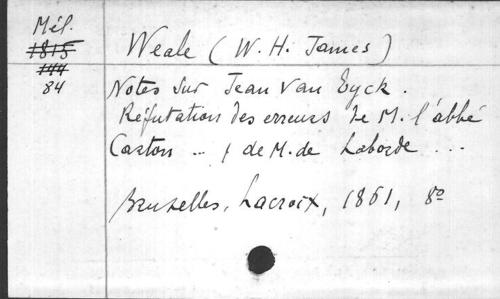 Mél.
1815
144
84
Weale (W. H. James)
Notes sur Jean Van Eyck.
Réfutation des erreurs de M. l'abbé
Carton ... & de M. de Laborde ...
Bruxelles, Lacroix, 1861, 8º